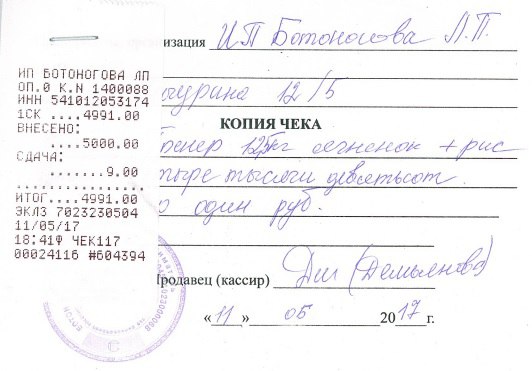 изация ИП Ботоногова Л.П.
ИП БОТОНОГОВА ЛП
ОП.0 К.N 1400088
ИНН 541012053174
1СК ....4991.00
ВНЕСЕНО:
....5000.00
СДАЧА:
.......9.00
................
ИТОГ....4991.00
ЭКЛЗ 7023230504
11/05/17
18:41Ф ЧЕК117
00024116 #604394
12/5
КОПИЯ ЧЕКА
ягненок + рис
тыре тысячи девятьсот
о один руб.
Продавец (кассир) (Демьянова)
« 11 » 05 2017 г.